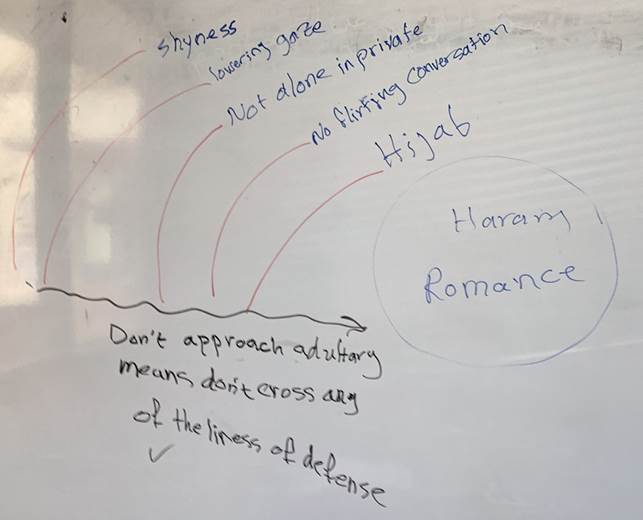 shyness
lowering gaze
Not alone in private
No flirting conversation
Hijab
Haram
Romance
Don't approach adultary
means don't cross any
of the liness of defense